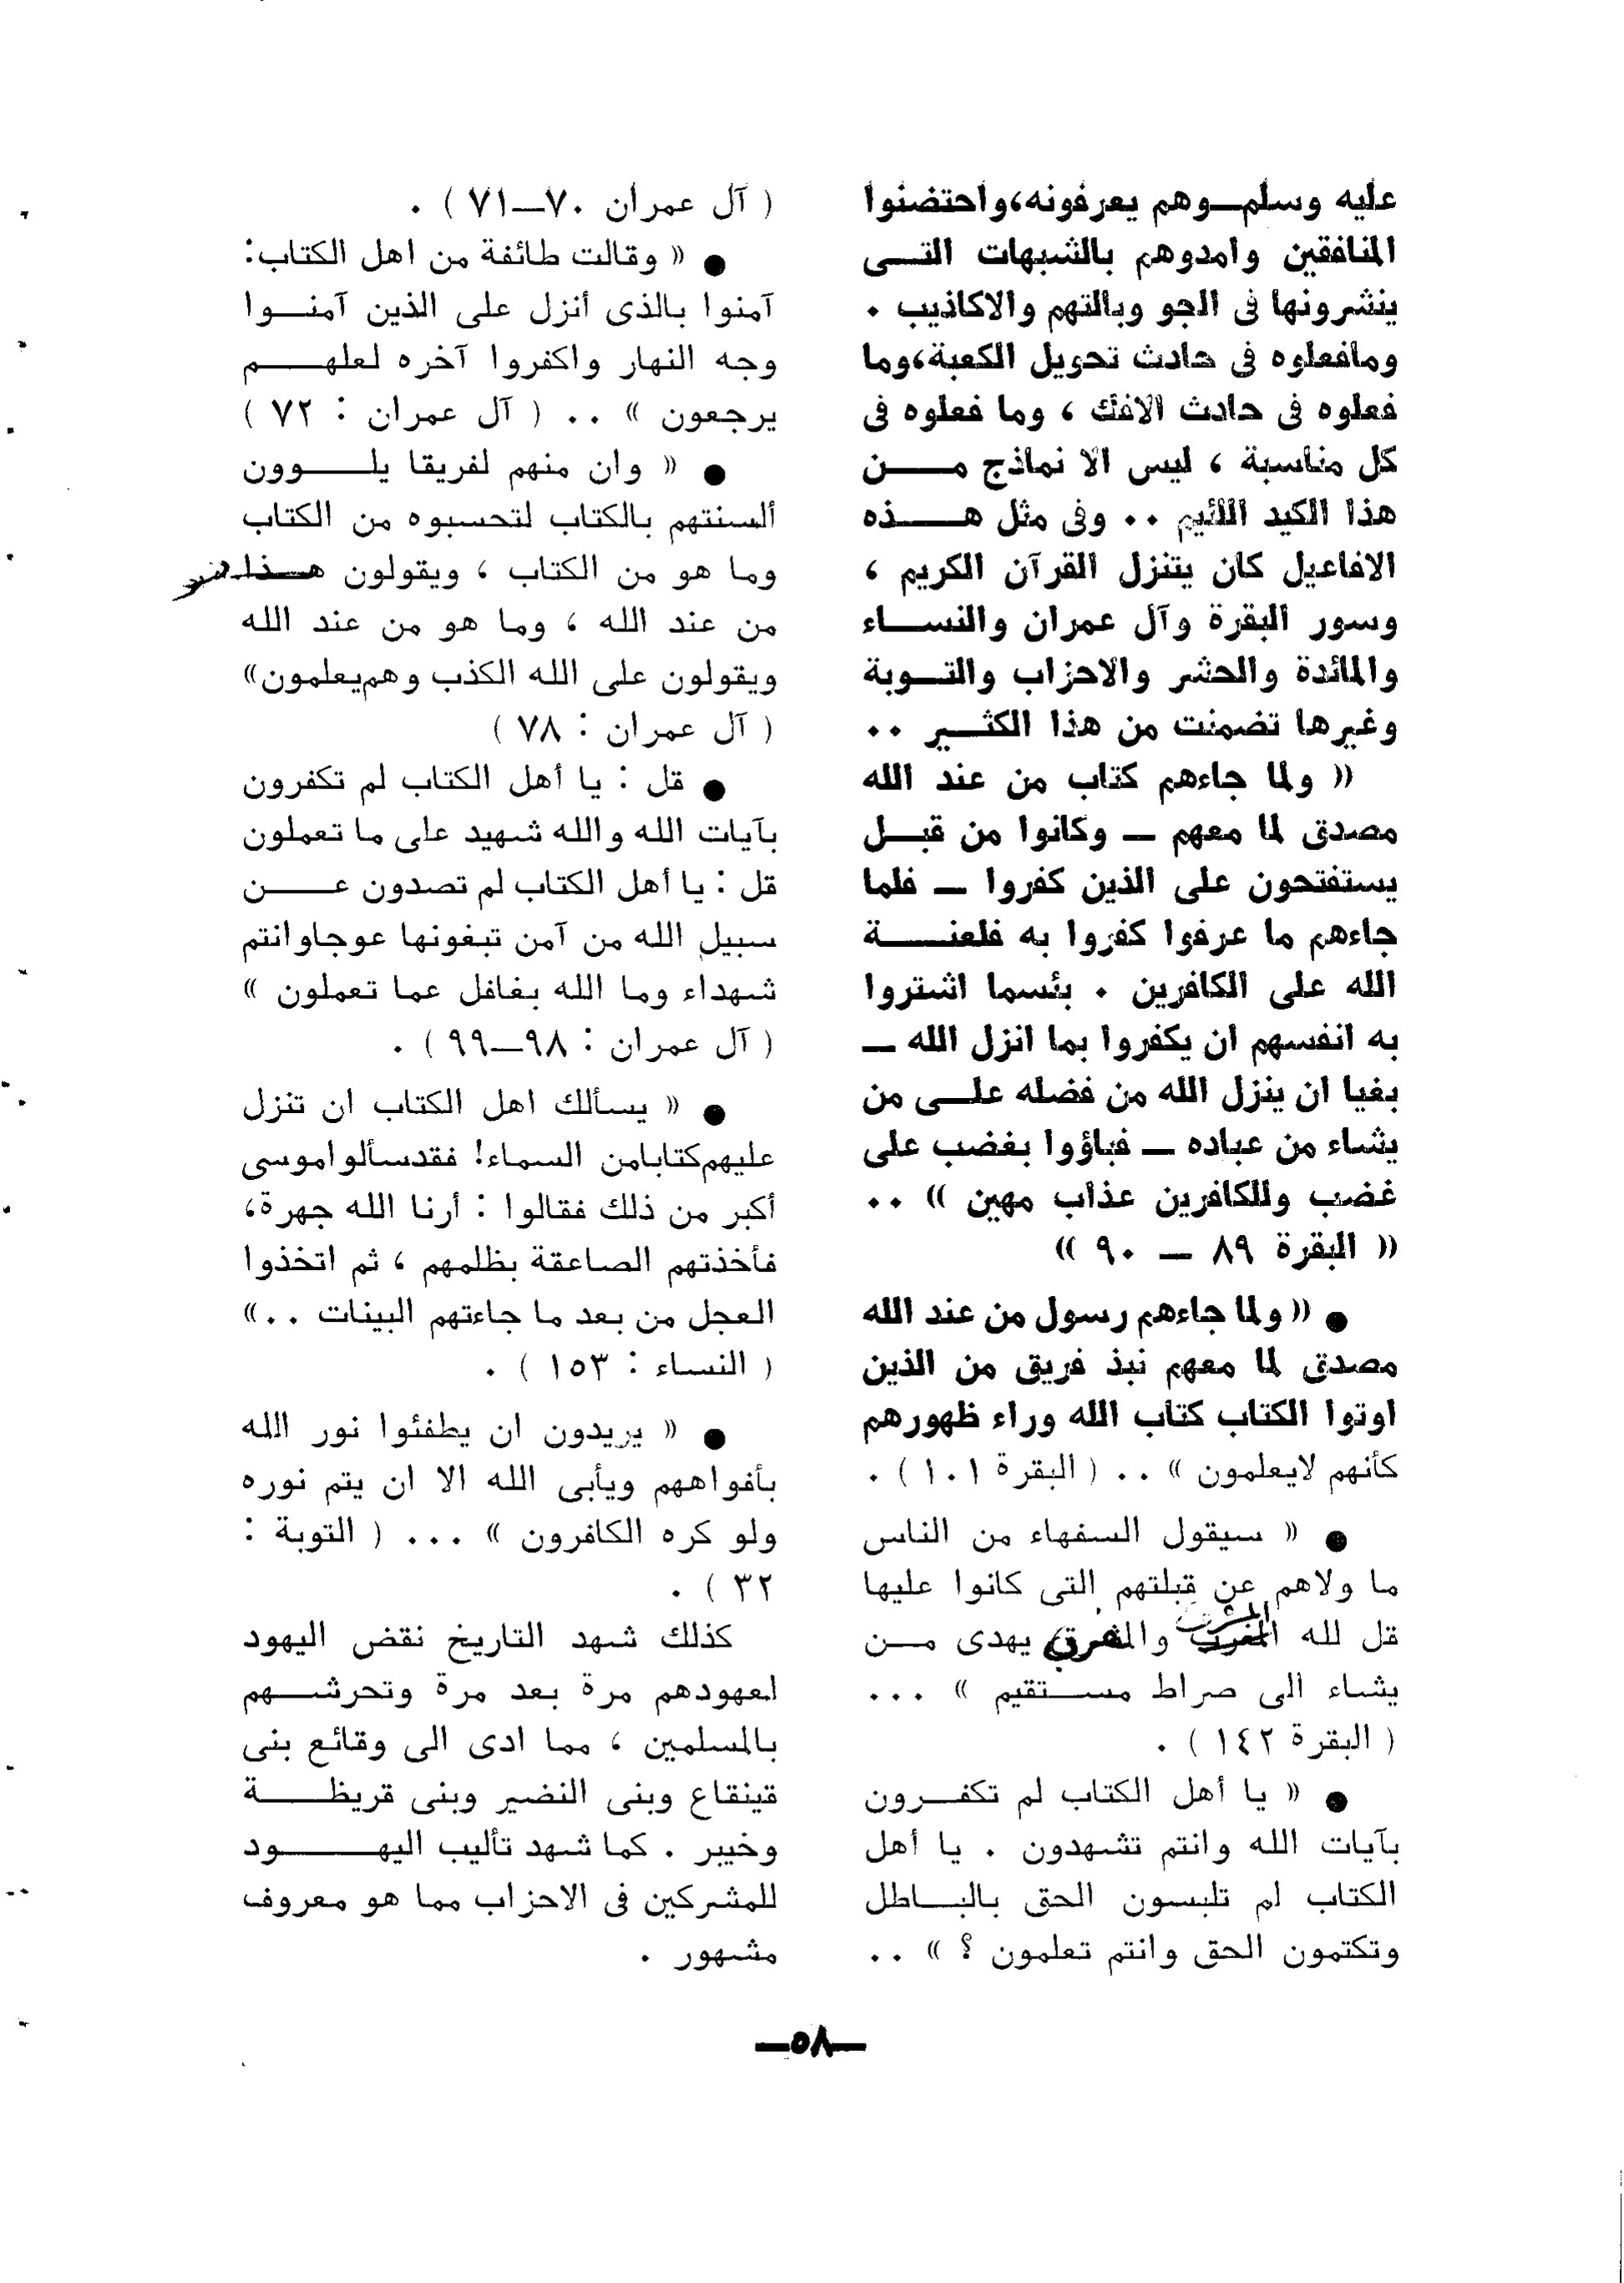 عليه وسلم—وهم يعرفونه،واحتضنوا
المنافقين وامدوهم بالشبهات التى
ينشرونها فى الجو وبالتهم والاكاذيب .
ومافعلوه فى حادث تحويل الكعبة،وما
فعلوه فى حادث الافك ، وما فعلوه فى
كل مناسبة ، ليس الا نماذج من
هذا الكيد اللئيم .. وفى مثل هذه
الافاعيل كان يتنزل القرآن الكريم ،
وسور البقرة وآل عمران والنساء
والمائدة والحشر والاحزاب والتوبة
وغيرها تضمنت من هذا الكثير ..
« ولما جاءهم كتاب من عند الله
مصدق لما معهم — وكانوا من قبل
يستفتحون على الذين كفروا — فلما
جاءهم ما عرفوا كفروا به فلعنة
الله على الكافرين . بئسما اشتروا
به انفسهم ان يكفروا بما انزل الله —
بغيا ان ينزل الله من فضله على من
يشاء من عباده — فباؤوا بغضب على
غضب وللكافرين عذاب مهين » ..
« البقرة ٨٩ — ٩٠ »
● « ولما جاءهم رسول من عند الله
مصدق لما معهم نبذ فريق من الذين
اوتوا الكتاب كتاب الله وراء ظهورهم
كأنهم لايعلمون » .. ( البقرة ١٠١ ) .
● « سيقول السفهاء من الناس
ما ولاهم عن قبلتهم التى كانوا عليها
قل لله المشرق والمغرب يهدى من
يشاء الى صراط مستقيم » ...
( البقرة ١٤٢ ) .
● « يا أهل الكتاب لم تكفرون
بآيات الله وانتم تشهدون . يا أهل
الكتاب لم تلبسون الحق بالباطل
وتكتمون الحق وانتم تعلمون ؟ » ..
( آل عمران ٧٠—٧١ ) .
● « وقالت طائفة من اهل الكتاب:
آمنوا بالذى أنزل على الذين آمنوا
وجه النهار واكفروا آخره لعلهم
يرجعون » .. ( آل عمران : ٧٢ )
● « وان منهم لفريقا يلوون
ألسنتهم بالكتاب لتحسبوه من الكتاب
وما هو من الكتاب ، ويقولون هذا هو
من عند الله ، وما هو من عند الله
ويقولون على الله الكذب وهم يعلمون»
( آل عمران : ٧٨ )
● قل : يا أهل الكتاب لم تكفرون
بآيات الله والله شهيد على ما تعملون
قل : يا أهل الكتاب لم تصدون عن
سبيل الله من آمن تبغونها عوجاوانتم
شهداء وما الله بغافل عما تعملون »
( آل عمران : ٩٨—٩٩ ) .
● « يسألك اهل الكتاب ان تنزل
عليهم كتابا من السماء! فقدسألواموسى
أكبر من ذلك فقالوا : أرنا الله جهرة،
فأخذتهم الصاعقة بظلمهم ، ثم اتخذوا
العجل من بعد ما جاءتهم البينات ..»
( النساء : ١٥٣ ) .
● « يريدون ان يطفئوا نور الله
بأفواههم ويأبى الله الا ان يتم نوره
ولو كره الكافرون » ... ( التوبة :
٣٢ ) .
كذلك شهد التاريخ نقض اليهود
لعهودهم مرة بعد مرة وتحرشهم
بالمسلمين ، مما ادى الى وقائع بنى
قينقاع وبنى النضير وبنى قريظة
وخيبر . كما شهد تأليب اليهود
للمشركين فى الاحزاب مما هو معروف
مشهور .
—٥٨—